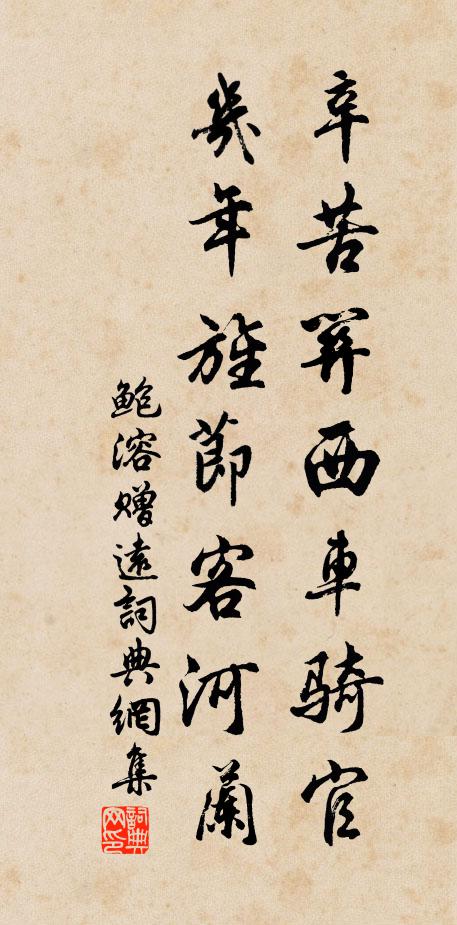 辛苦關西車騎官
幾年旌節客河蘭
鮑溶贈遠詞典網集
詞典網印